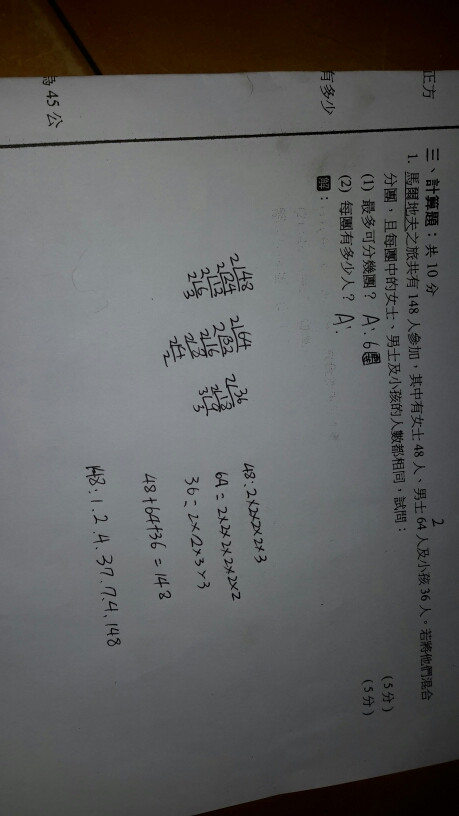 正方
有多少
時 45 公
三、計算題：共 10 分
1. 馬爾地夫之旅共有 148 人參加，其中有女士 48 人、男士 64 人及小孩 36 人。若將他們混合
2
分團，且每團中的女士、男士及小孩的人數都相同，試問：
(1) 最多可分幾團？ A: 6團 (5分)
(2) 每團有多少人？ A: (5分)
解：
2|48 2|64 2|36
2|24 2|32 2|18
2|12 2|16 3|9
2|6 2|8 3
3 2|4
2
48:2×2×2×2×3
64=2×2×2×2×2×2
36=2×2×3×3
48+64+36=148
148:1.2.4.37.74.148